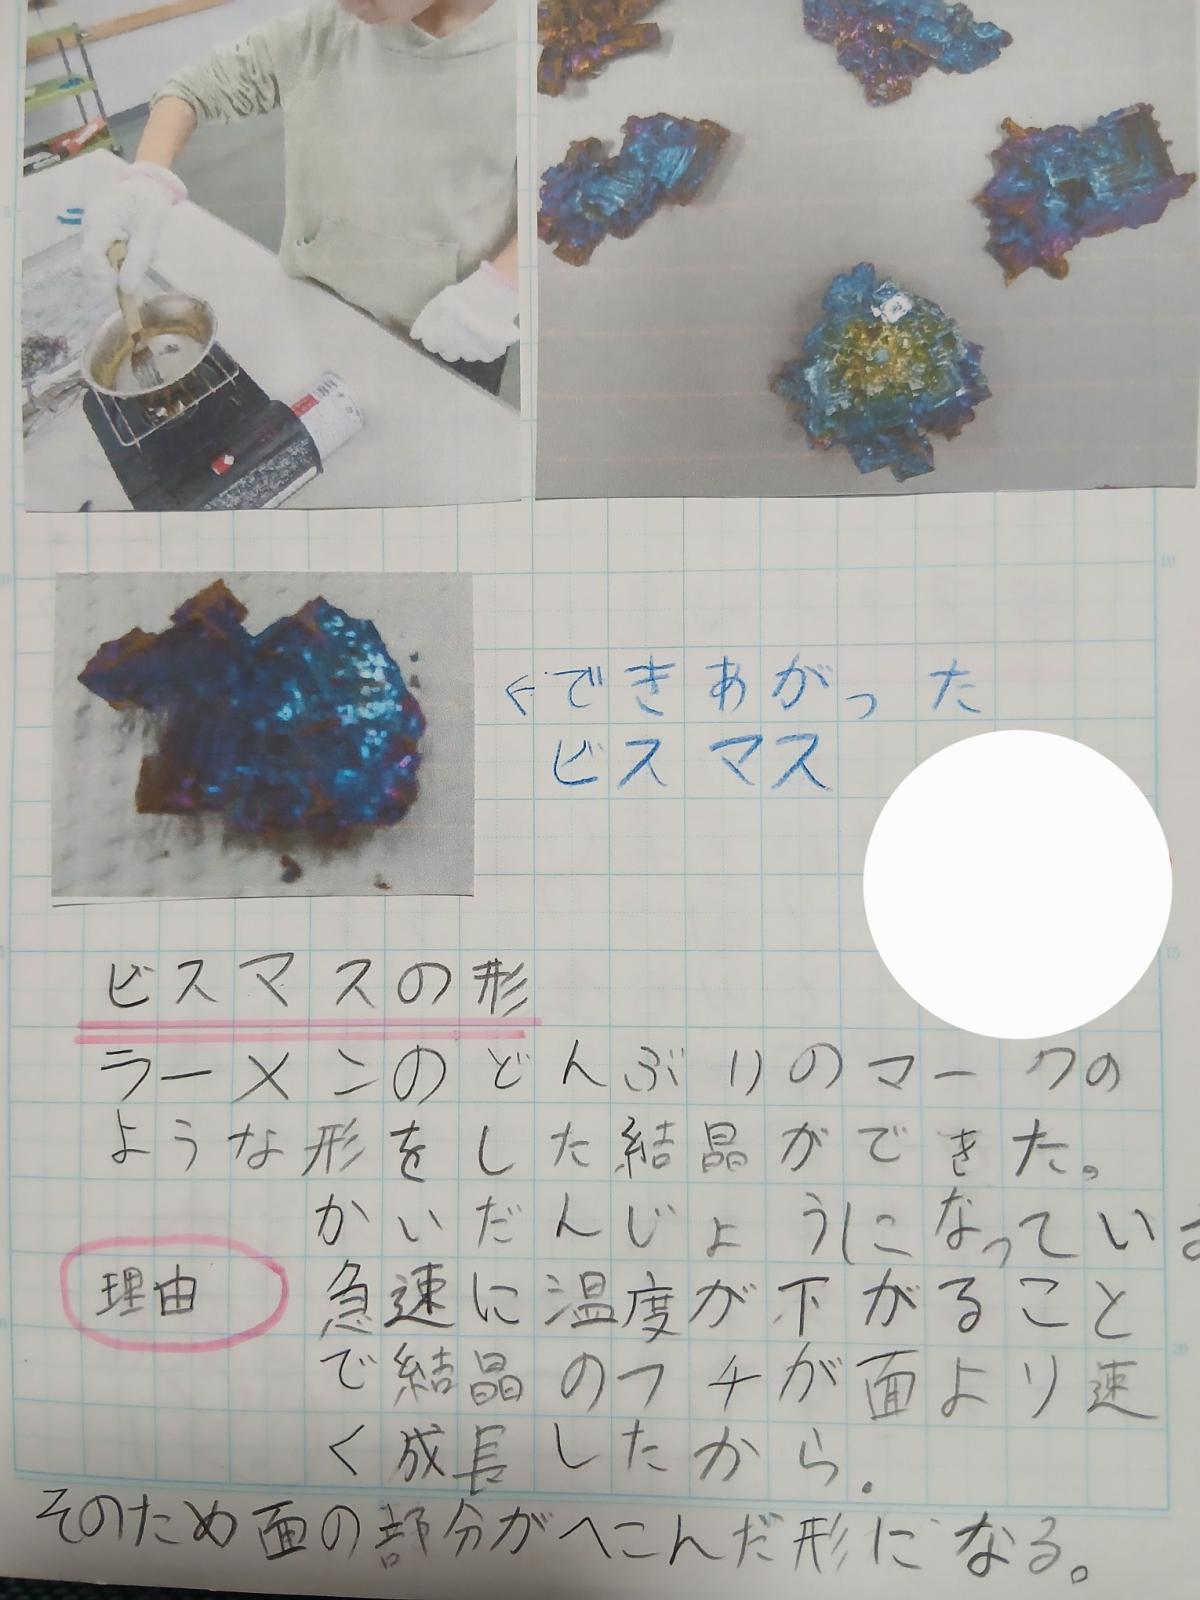 ←できあがった
ビスマス
ビスマスの形
ラーメンのどんぶりのマークの
ような形をした結晶ができた。
かいだんじょうになっている
理由 急速に温度が下がること
で結晶のフチが面より速
く成長したから.
そのため面の部分がへこんだ形になる。